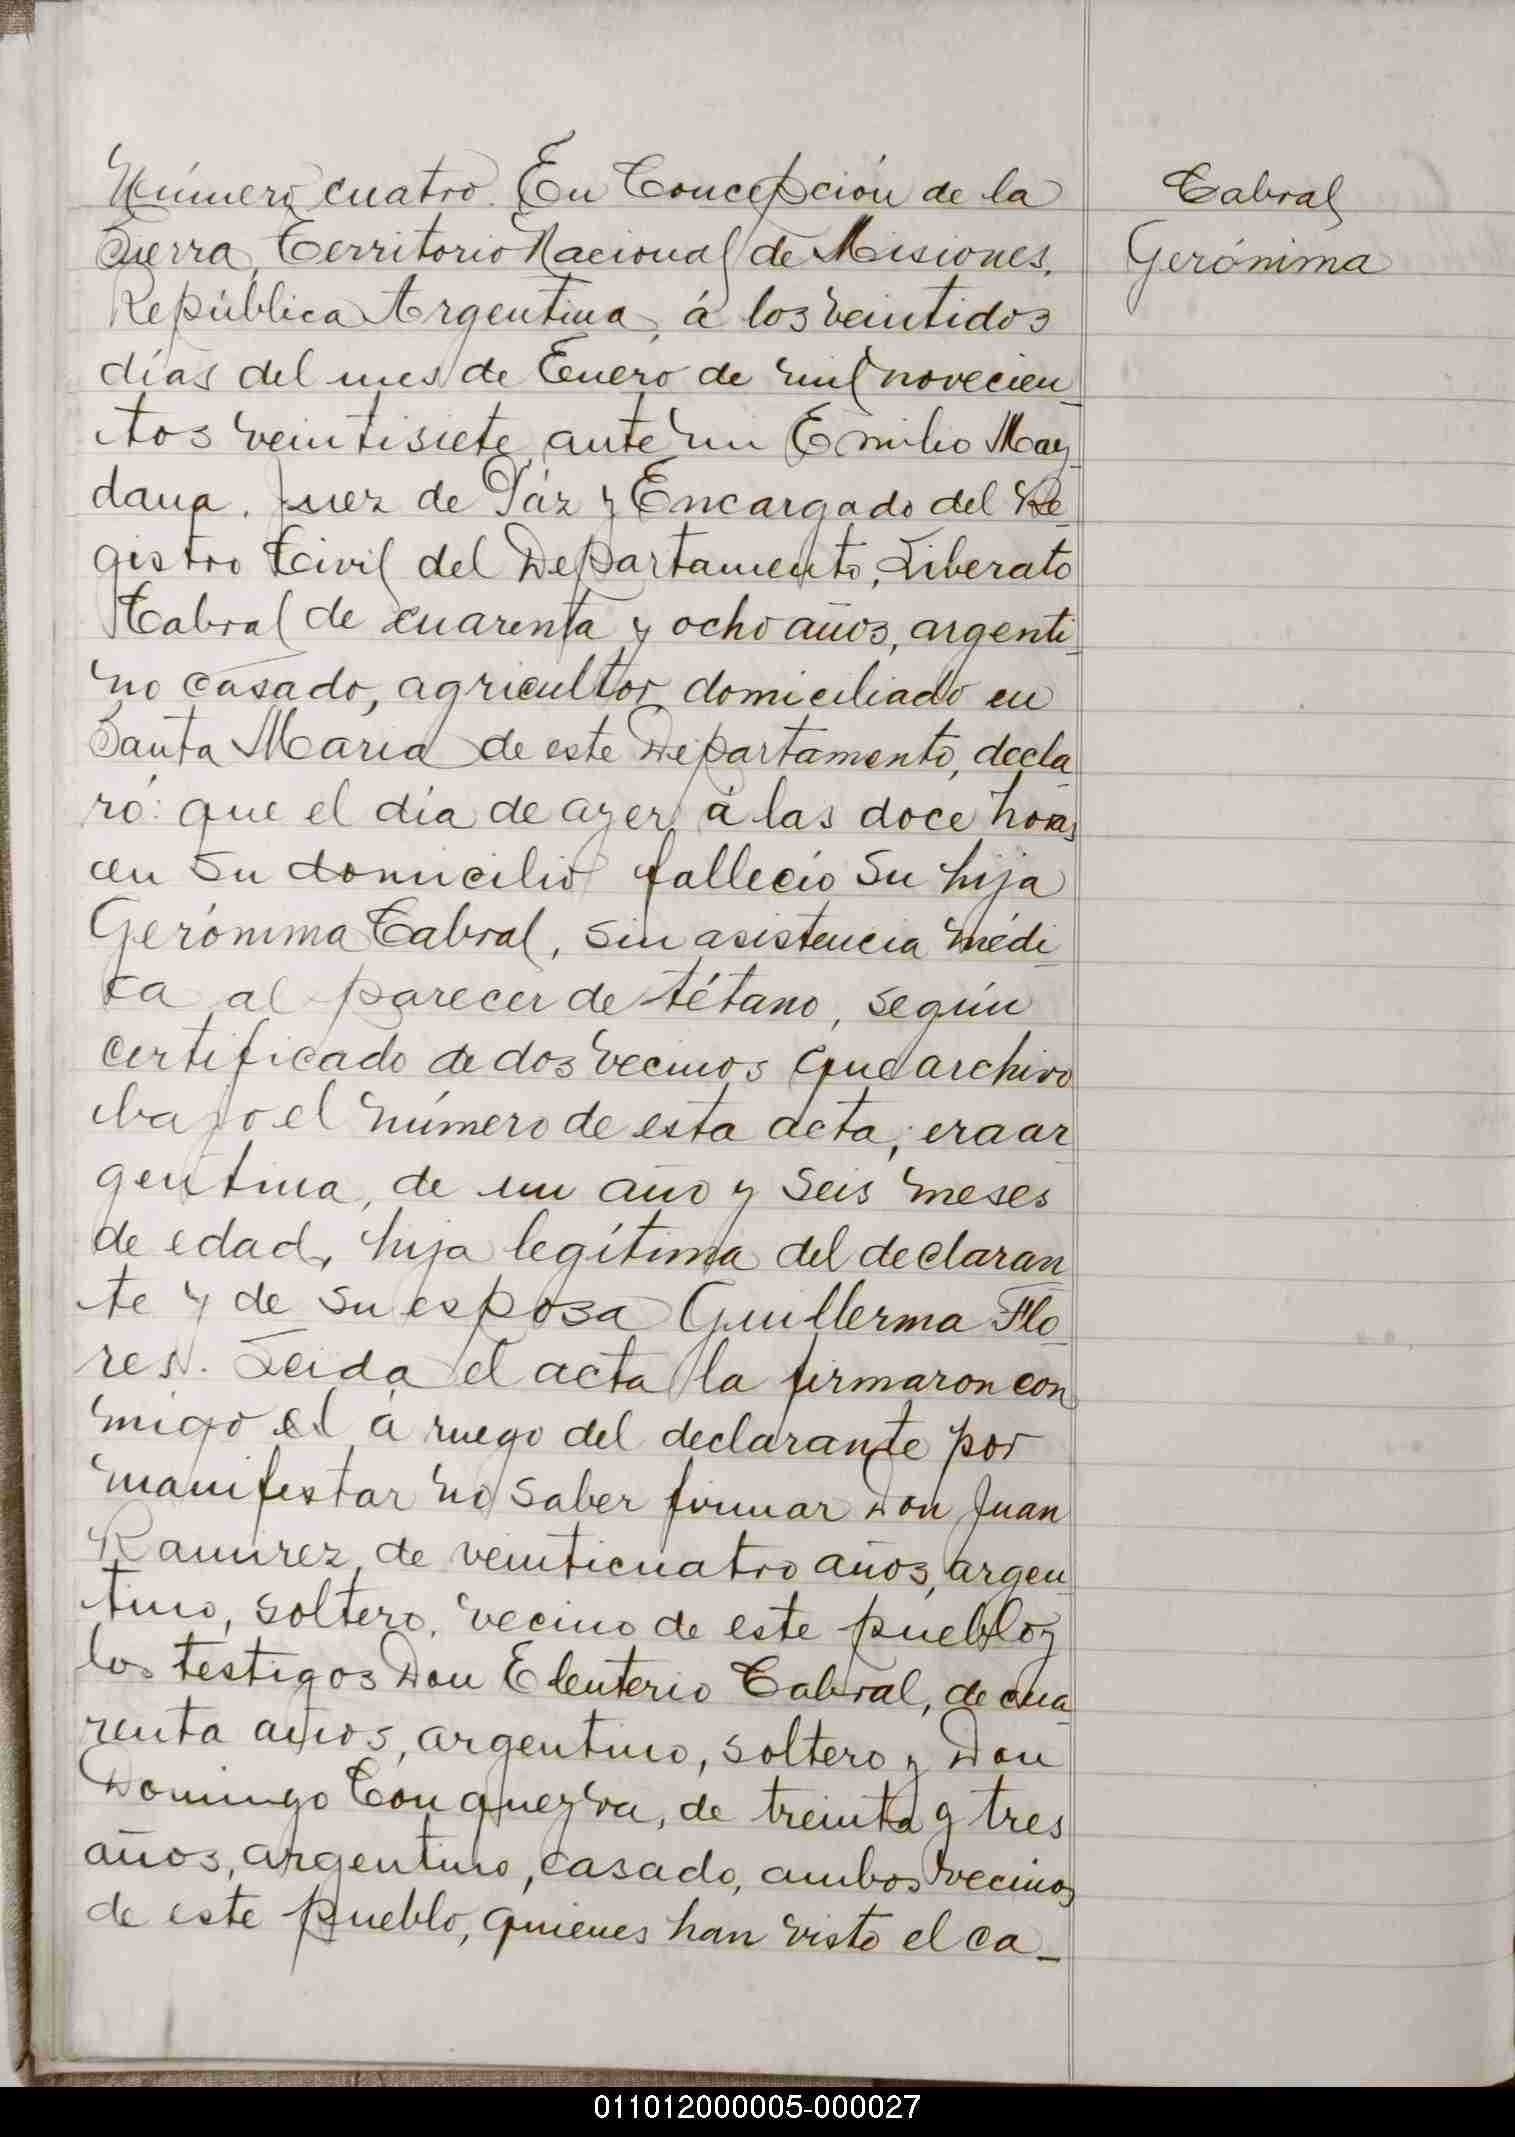 Número cuatro. En Concepción de la
Sierra, Territorio Nacional de Misiones,
República Argentina, á los veintidos
días del mes de Enero de mil novecien
tos veintisiete, ante mi Emilio May
dana, Juez de Páz y Encargado del Re
gistro Civil del Departamento, Liberato
Cabral de cuarenta y ocho años, argenti
no casado, agricultor, domiciliado en
Santa Maria de este Departamento, decla
ró: que el día de ayer á las doce horas
en su domicilio falleció su hija
Gerónima Cabral, sin asistencia médi
ca al parecer de tétano, según
certificado de dos vecinos que archivo
bajo el número de esta acta; era ar
gentina, de un año y seis meses
de edad, hija legítima del declaran
te y de su esposa Guillerma Flo
res. Leida el acta la firmaron con
migo el á ruego del declarante por
manifestar no saber firmar Don Juan
Ramirez, de veinticuatro años, argen
tino, soltero, vecino de este pueblo y
los testigos Don Eleuterio Cabral, de cua
renta años, argentino, soltero y Don
Domingo de treinta y tres
años, argentino, casado, ambos vecinos
de este pueblo, quienes han visto el ca-
Cabral
Gerónima
011012000005-000027